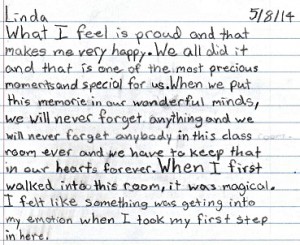 Linda 5/8/14
What I feel is proud and that
makes me very happy. We all did it
and that is one of the most precious
moments and special for us. When we put
this memorie in our wonderful minds,
we will never forget anything and we
will never forget anybody in this class
room ever and we have to keep that
in our hearts forever. When I first
walked into this room, it was magical.
I felt like something was geting into
my emotion when I took my first step
in here.